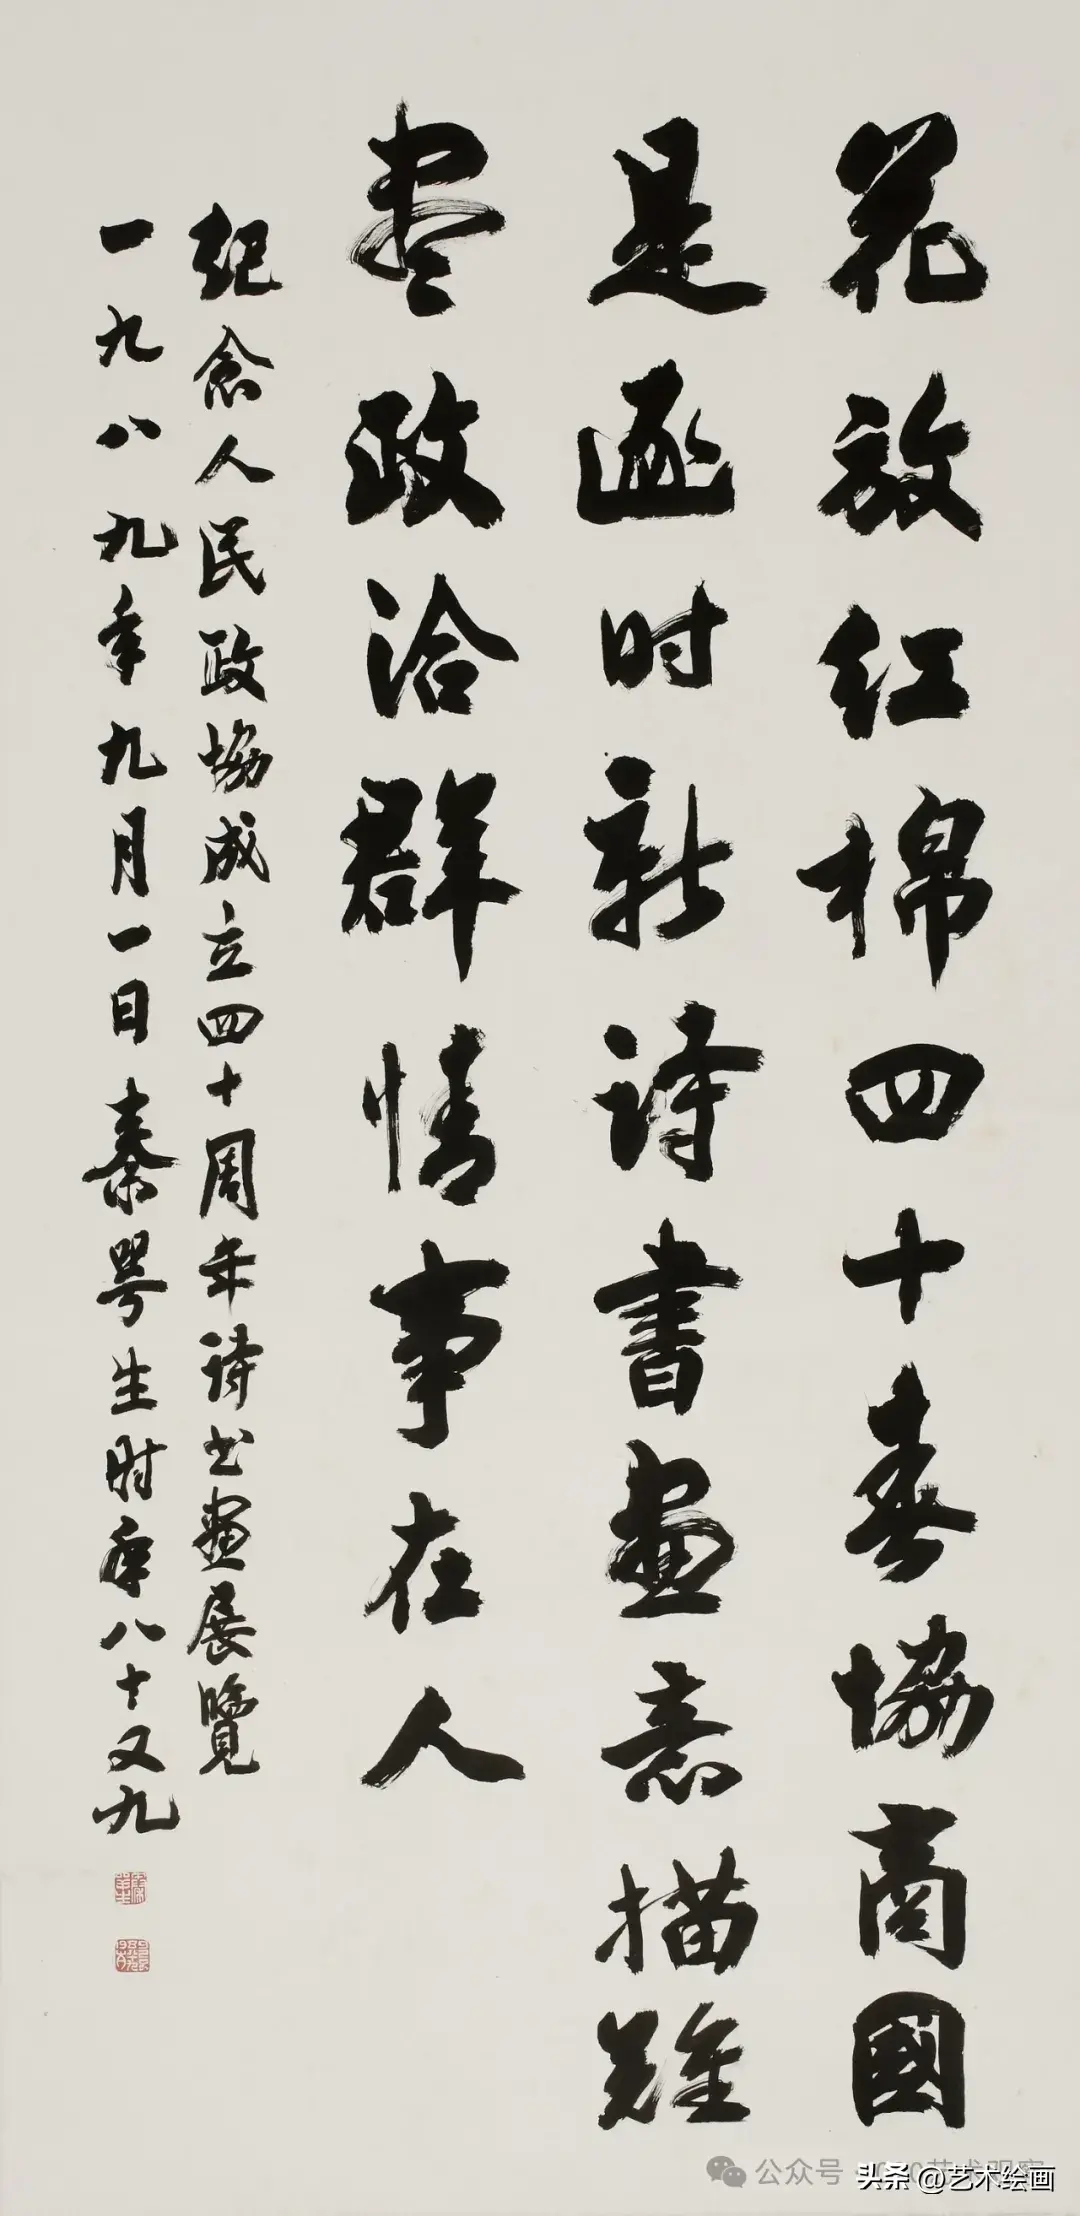 花放红棉四十春協商國
是逐时新诗書畫意描難
盡政洽群情事在人
紀念人民政協成立四十周年诗书畫展覽
一九八九年九月一日秦咢生时年八十又九
公众号
头条 @艺术绘画